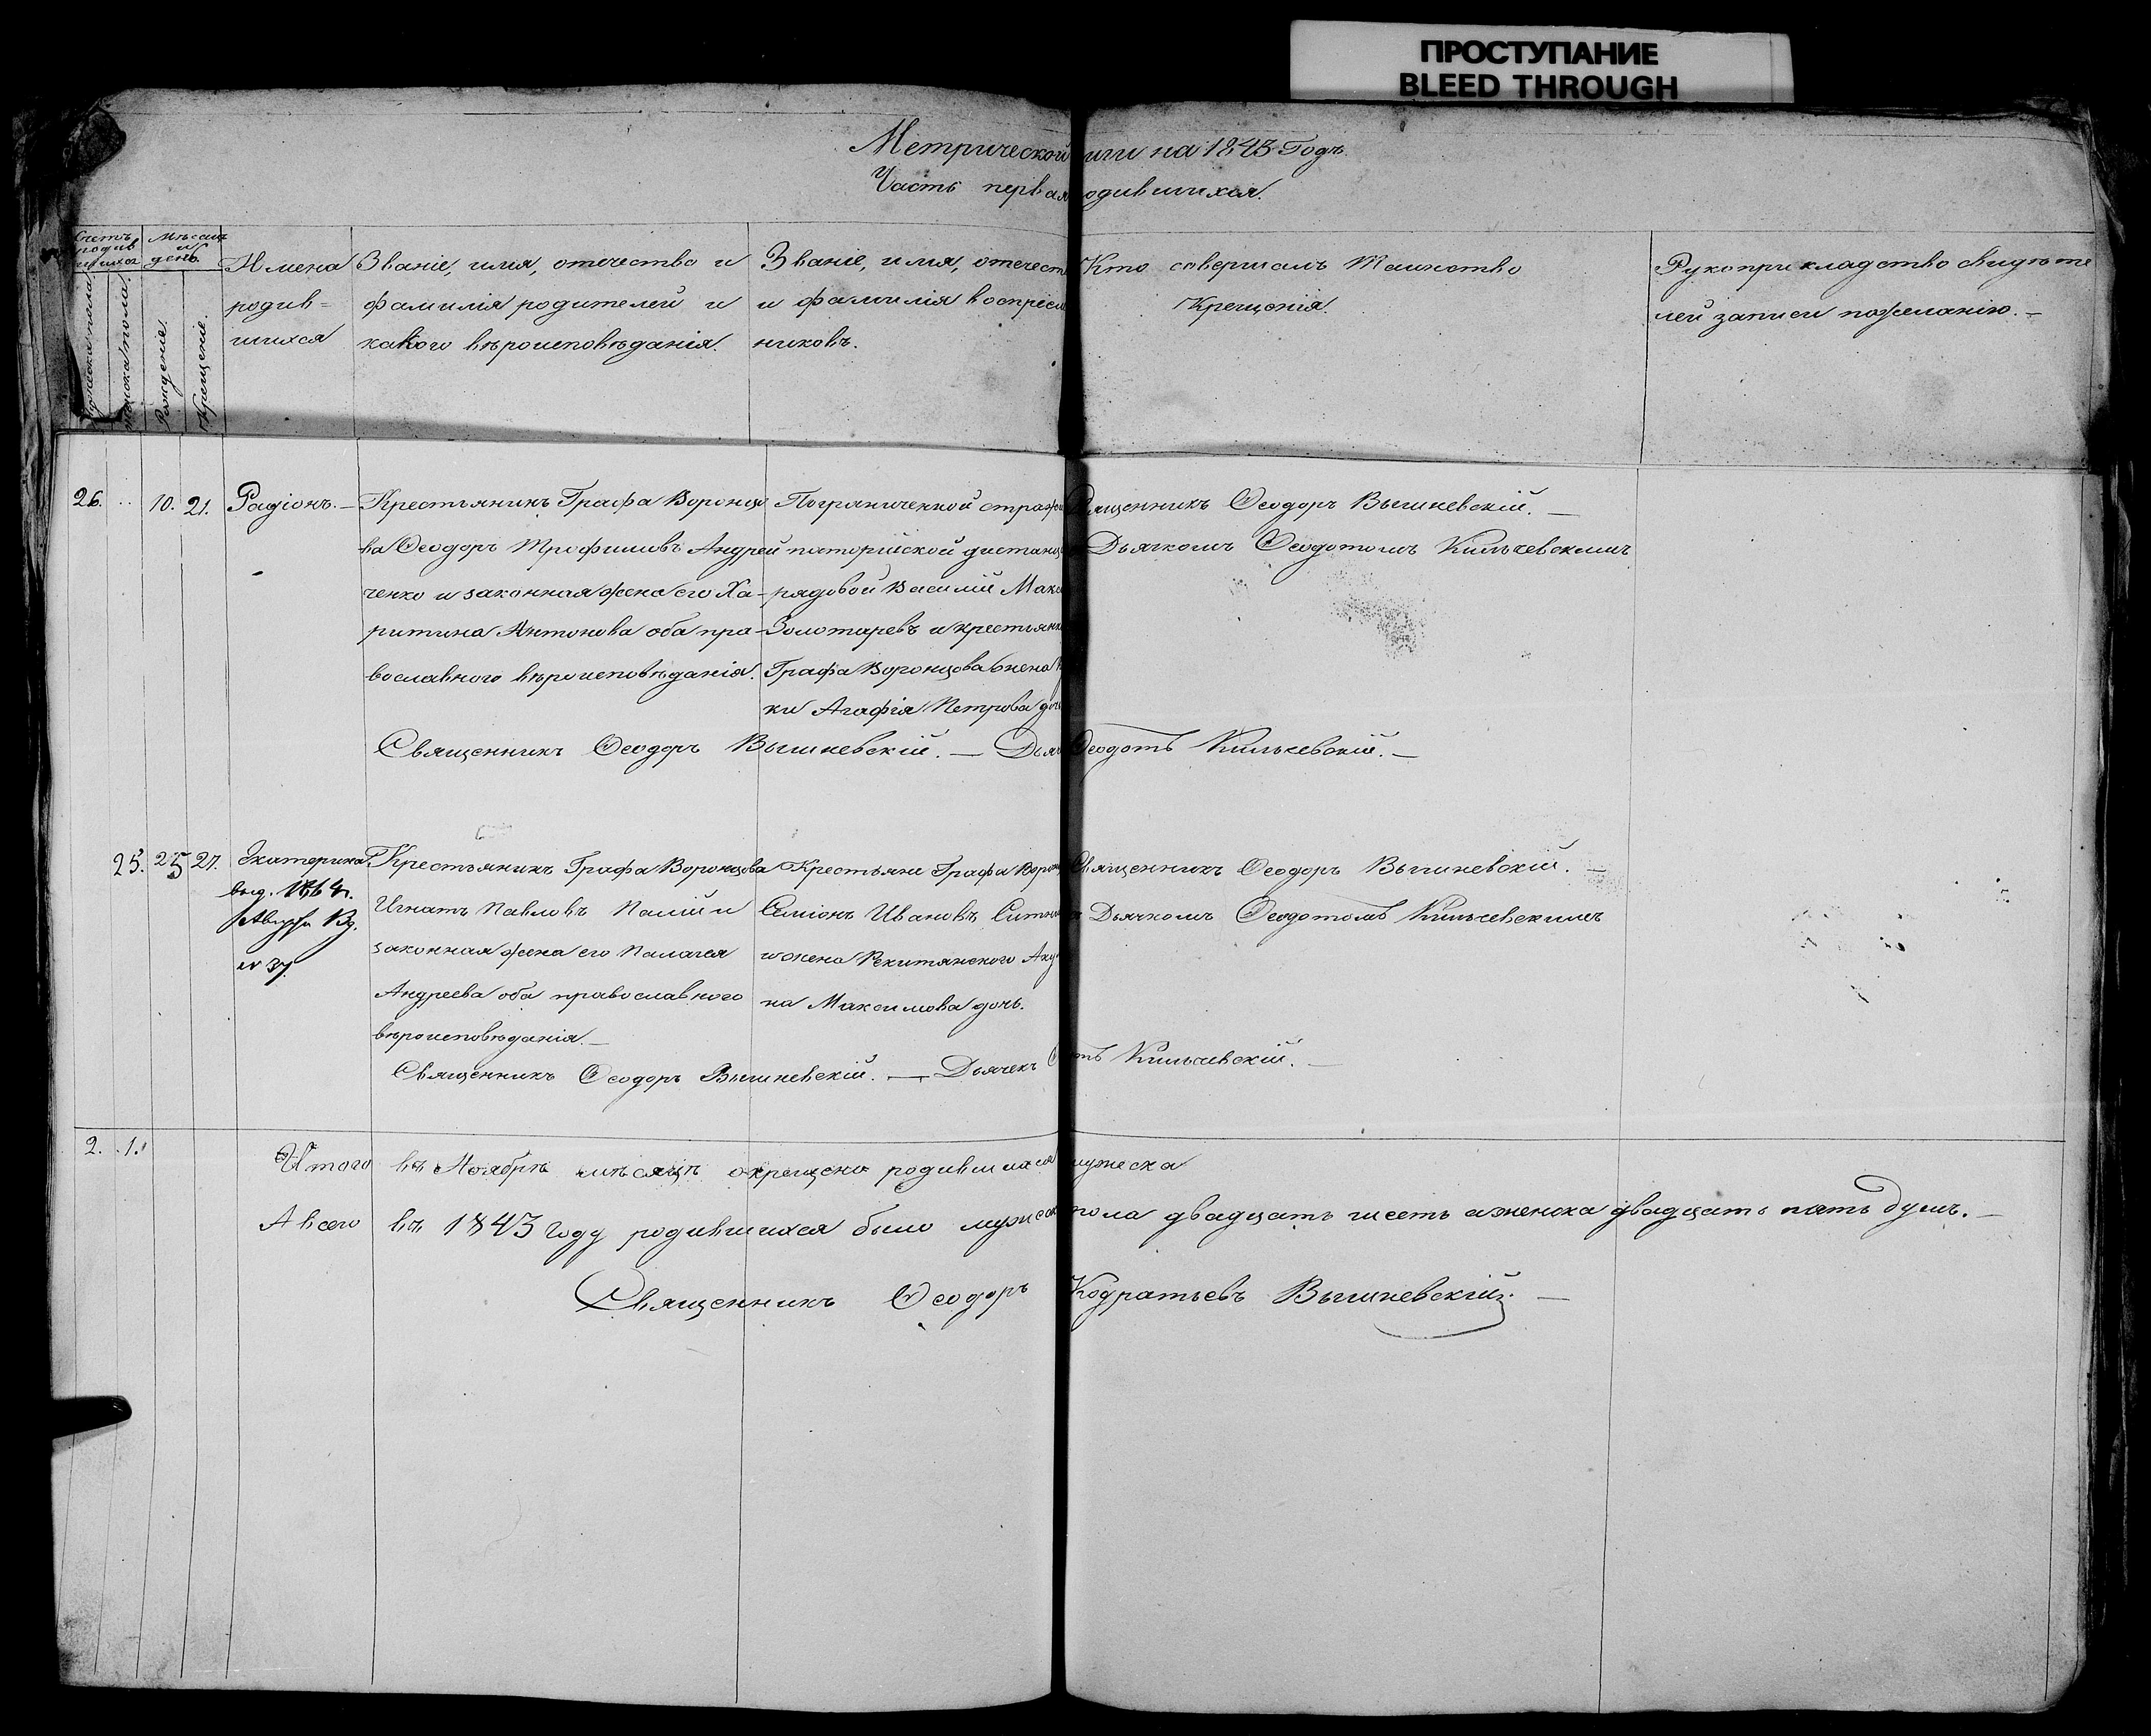 ПРОСТУПАНИЕ
BLEED THROUGH
Метрической иги на 1843 Годъ.
Часть первая одившихся.
Счетъ родив шихся
Мѣсяцъ и день.
Имена родив= шихся
Званіе, имя, отечество и фамилія родителей и какого вѣроисповѣданія.
Званіе, имя, отечест и фамилія воспріем никовъ.
Кто совершалъ Таинство Крещенія.
Рукоприкладство свидѣте лей записи по желанію. —
Мужеска пола
Женска пола
Рожденіе.
Крещеніе.
26. .. 10. 21. Радіонъ. —
Крестьянинъ Графа Воронцо
ва Ѳеодоръ Трофимовъ Андрей
ченко и законная жена его Ха-
ритина Антонова оба пра-
вославного вѣроисповѣданія.
Пограниченной страж
паторійской дистанц
рядовой Василій Мак
Золотаревъ и крестьянк
Графа Воронцова жена
ки Агафія Петрова доч
Священникъ Ѳеодоръ Вышневскій. —
Дьячкомъ Ѳеодотомъ Кильчевскимъ
Священникъ Ѳеодоръ Вышневскій. — Дьяч Ѳеодотъ Кильчевскій. —
25. 25 27. Екатерина.
выд. 1864 г.
Августа
№ 37
Крестьянинъ Графа Воронцова
Игнатъ Павловъ Палій и
законная жена его Палагея
Андреева оба православного
вѣроисповѣданія. —
Крестьяне Графа Ворон
Семіонъ Ивановъ Ситн
и жена Рекитянского Аку
на Максимова дочь.
Священникъ Ѳеодоръ Вышневскій. —
Дьячкомъ Ѳеодотомъ Кильчевскимъ
Священникъ Ѳеодоръ Вышневскій. — Дьячекъ Ѳ отъ Кильчевскій. —
2. 1. Итого въ Ноябрѣ мѣсяцѣ окрещено родившихся мужеска
А всего въ 1843 году родившихся было мужеска пола двадцать шесть а женска двадцать пять душъ. —
Священникъ Ѳеодоръ Кодратьевъ Вышневскій. —